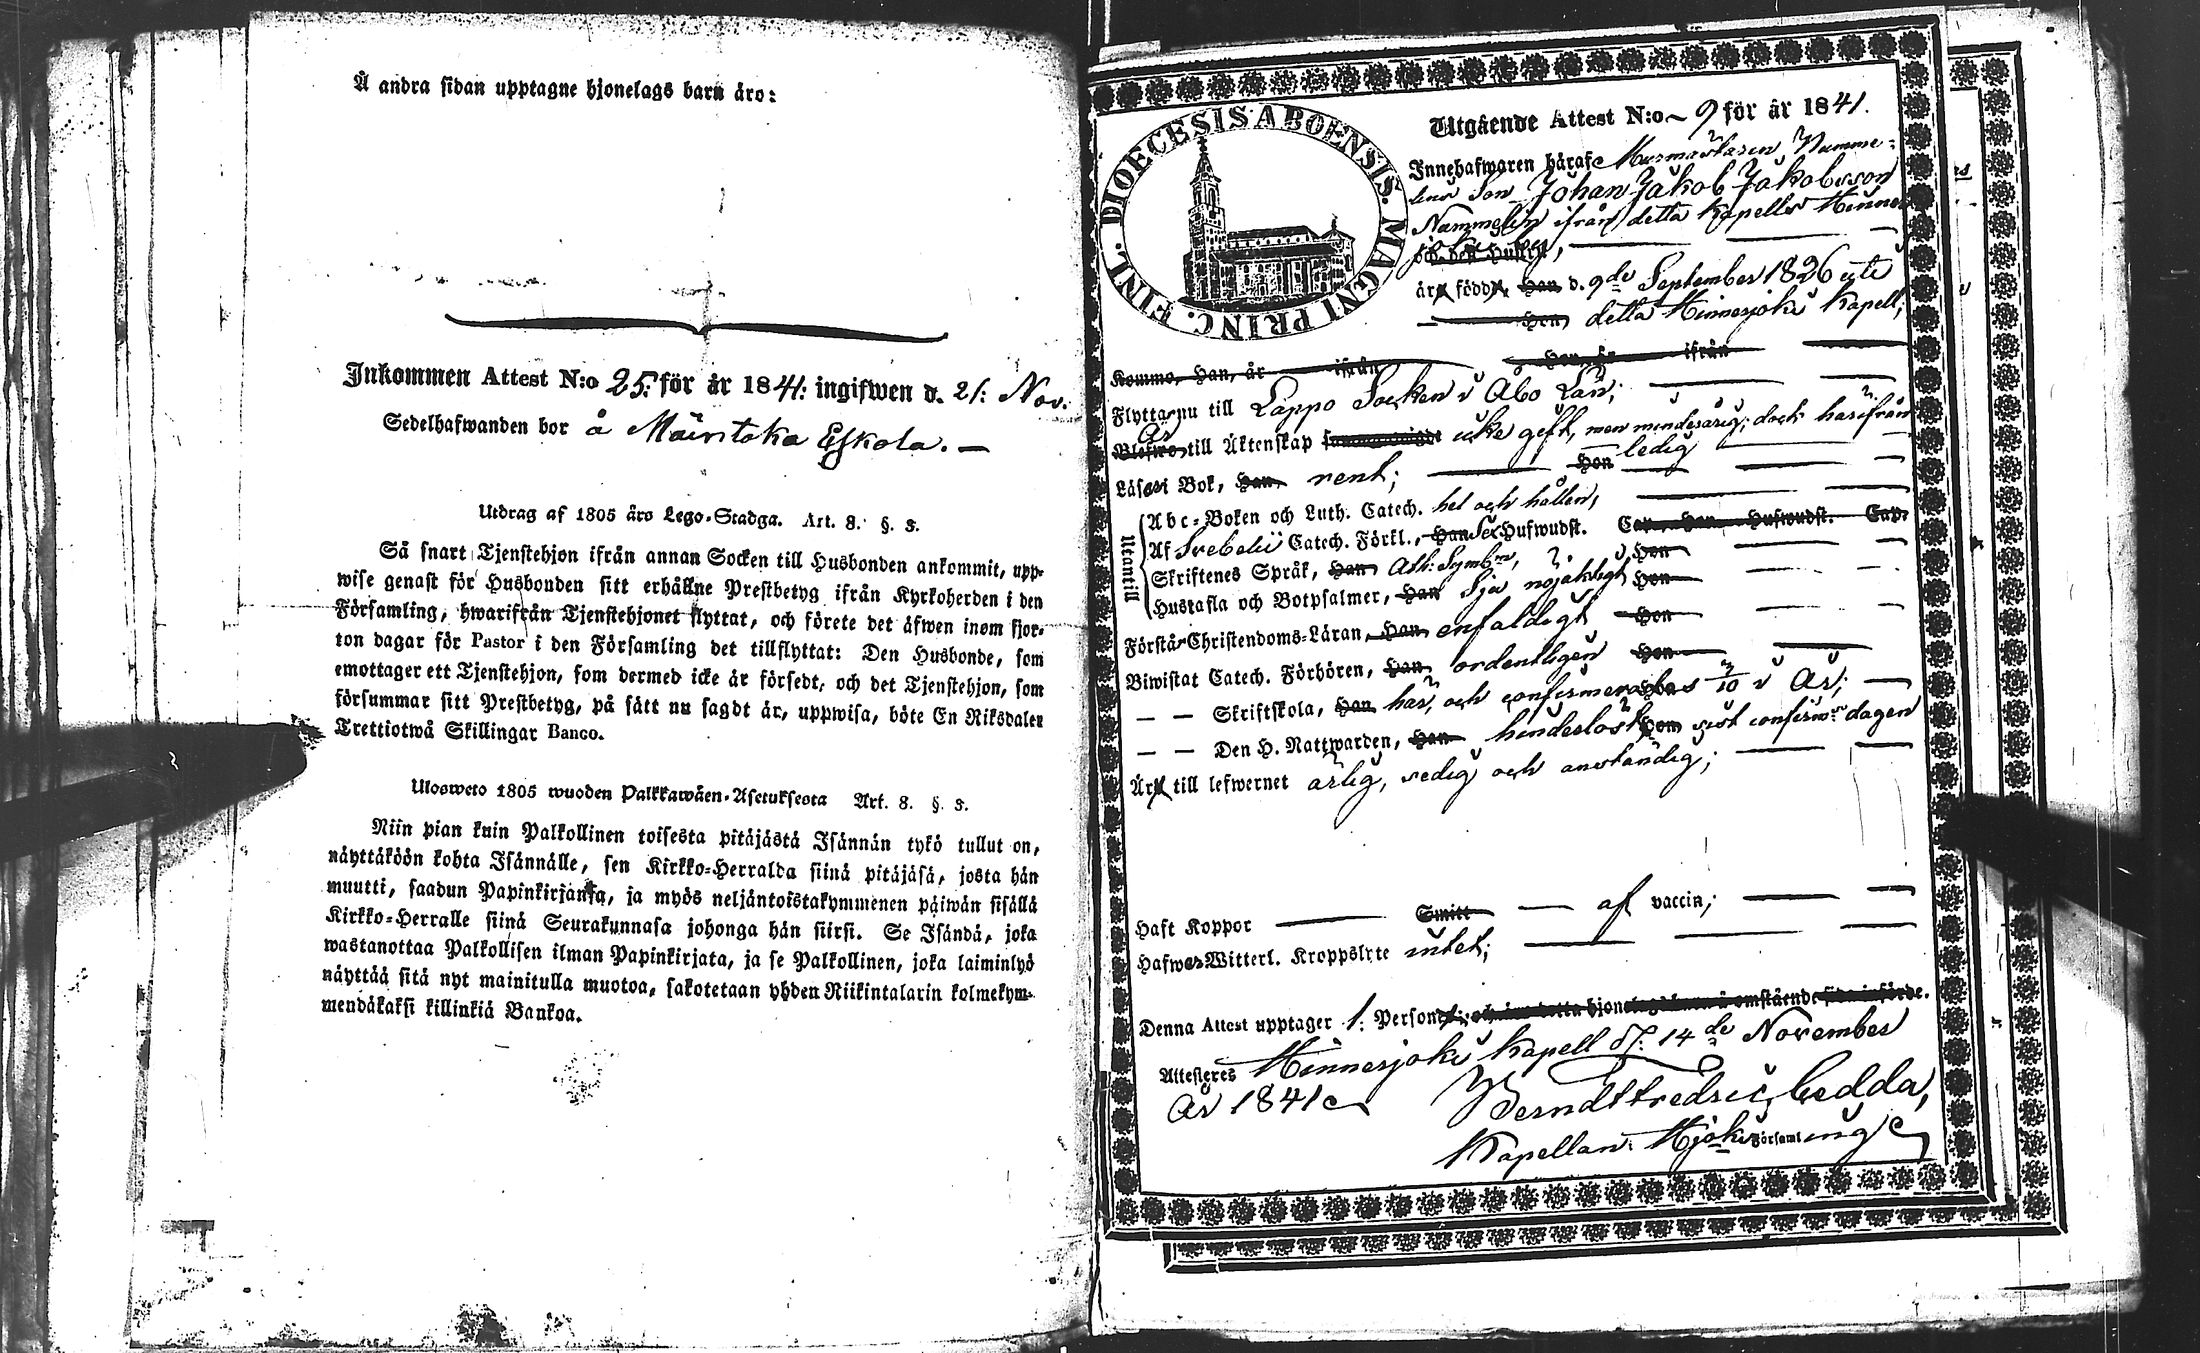 Å andra sidan upptagne hjonelags barn äro:
Inkommen Attest N:o 25: för år 1841: ingifwen d. 21: Nov.
Sedelhafwanden bor å Mäentaka Eskola. —
Utdrag af 1805 års Lego-Stadga. Art. 8. §. 3.
Så snart Tjenstehjon ifrån annan Socken till Husbonden ankommit, upp-
wise genast för Husbonden sitt erhållne Prestbetyg ifrån Kyrkoherden i den
Församling, hwarifrån Tjenstehjonet flyttat, och förete det äfwen inom fjor-
ton dagar för Pastor i den Församling det tillflyttat: Den Husbonde, som
emottager ett Tjenstehjon, som dermed icke är försedt, och det Tjenstehjon, som
försummar sitt Prestbetyg, på sätt nu sagdt är, uppwisa, böte En Riksdaler
Trettiotwå Skillingar Banco.
Ulosweto 1805 wuoden Palkkawäen-Asetuksesta Art. 8. §. 3.
Niin pian kuin Palkollinen toisesta pitäjästä Isännän tykö tullut on,
näyttäköön kohta Isännälle, sen Kirkko-Herralda siinä pitäjäsä, josta hän
muutti, saadun Papinkirjansa, ja myös neljäntoistakymmenen päiwän sisällä
Kirkko-Herralle siinä Seurakunnasa johonga hän siirsi. Se Isändä, joka
wastanottaa Palkollisen ilman Papinkirjata, ja se Palkollinen, joka laiminlyö
näyttää sitä nyt mainitulla muotoa, sakotetaan yhden Riikintalarin kolmekym-
mendäkaksi killinkiä Bankoa.
FINL. DIOECESIS ABOENSIS. MAGNI PRINC.
Utgående Attest N:o 9 för år 1841.
Innehafwaren häraf Murmästaren Numme-
lins Son Johan Jakob Jakobsson
Nummelin ifrån detta Kapells Kinner
och des Hustru,
är född, Han d. 9de September 1826 uti
Hon detta Hinnerjoki Kapell,
Komme, Han, år ifrån Hon, år ifrån
Flytta nu till Lappo Socken i Åbo Län;
Är
Blefwo till Äktenskap sammanwigde icke gift, men minderårig, dock härifrån
ledig
Läser i Bok, Han, rent; Hon
Utantill
Abc-Boken och Luth. Catech. hel och hållen,
Af Svebelii Catech. Förkl., Han Sex Hufwudst. Cap. Hon Hufwudst. Cap.
Skriftenes Språk, Han Ath: Symb:m, Hon
Hustafla och Botpsalmer, Han Sju nöjaktigt Hon
Förstår Christendoms-Läran, Han enfaldigt Hon
Biwistat Catech. Förhören, Han ordentligen Hon
— — Skriftskola, Han har, och confirmerades i År;
— — Den H. Nattwarden, Han hinderslöst, Hon sist confirm:s dagen
Är till lefwernet ärlig, sedig och anständig;
Haft Koppor Smitt — af vaccin;
Hafwer Witterl. Kroppslyte intet;
Denna Attest upptager 1: Person, och äro detta hjonelags barn å omstående sida införde.
Attesteres Hinnerjoki Kapell d. 14de November
År 1841
Berndt Fredric Cedda,
Kapellan i Hjoki Församling